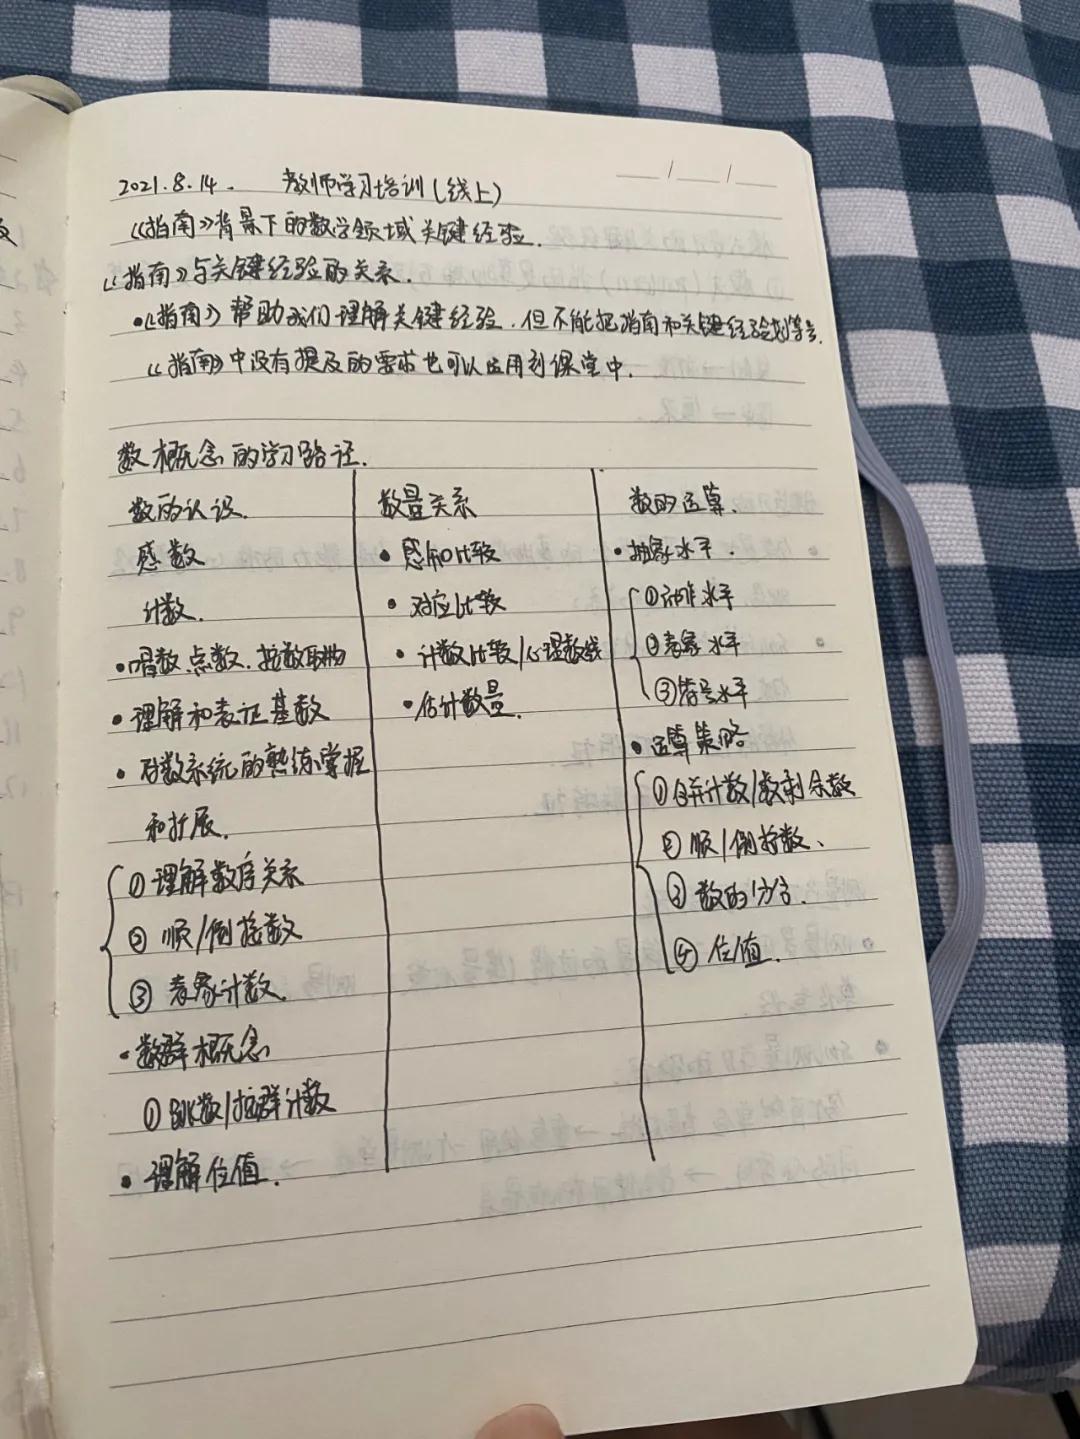 2021.8.14. 教师学习培训(线上)
《指南》背景下的数学领域关键经验.
《指南》与关键经验的关系.
•《指南》帮助我们理解关键经验,但不能把指南和关键经验划等号.
《指南》中没有提及的要求也可以运用到课堂中.
数概念的学习路径.
数的认识.
感数
计数.
•唱数、点数、按数取物
•理解和表征基数
•对数系统的熟练掌握
和扩展.
①理解数序关系
②顺/倒接数
③表象计数.
•数群概念
①跳数/按群计数
•理解位值.
数量关系
•感知比较
•对应比较
•计数比较/心理数线
•估计数量.
数的运算.
•抽象水平.
①动作水平
②表象水平
③符号水平
•运算策略
①合并计数/数剩余数
②顺/倒接数、
③数的分合.
④位值.